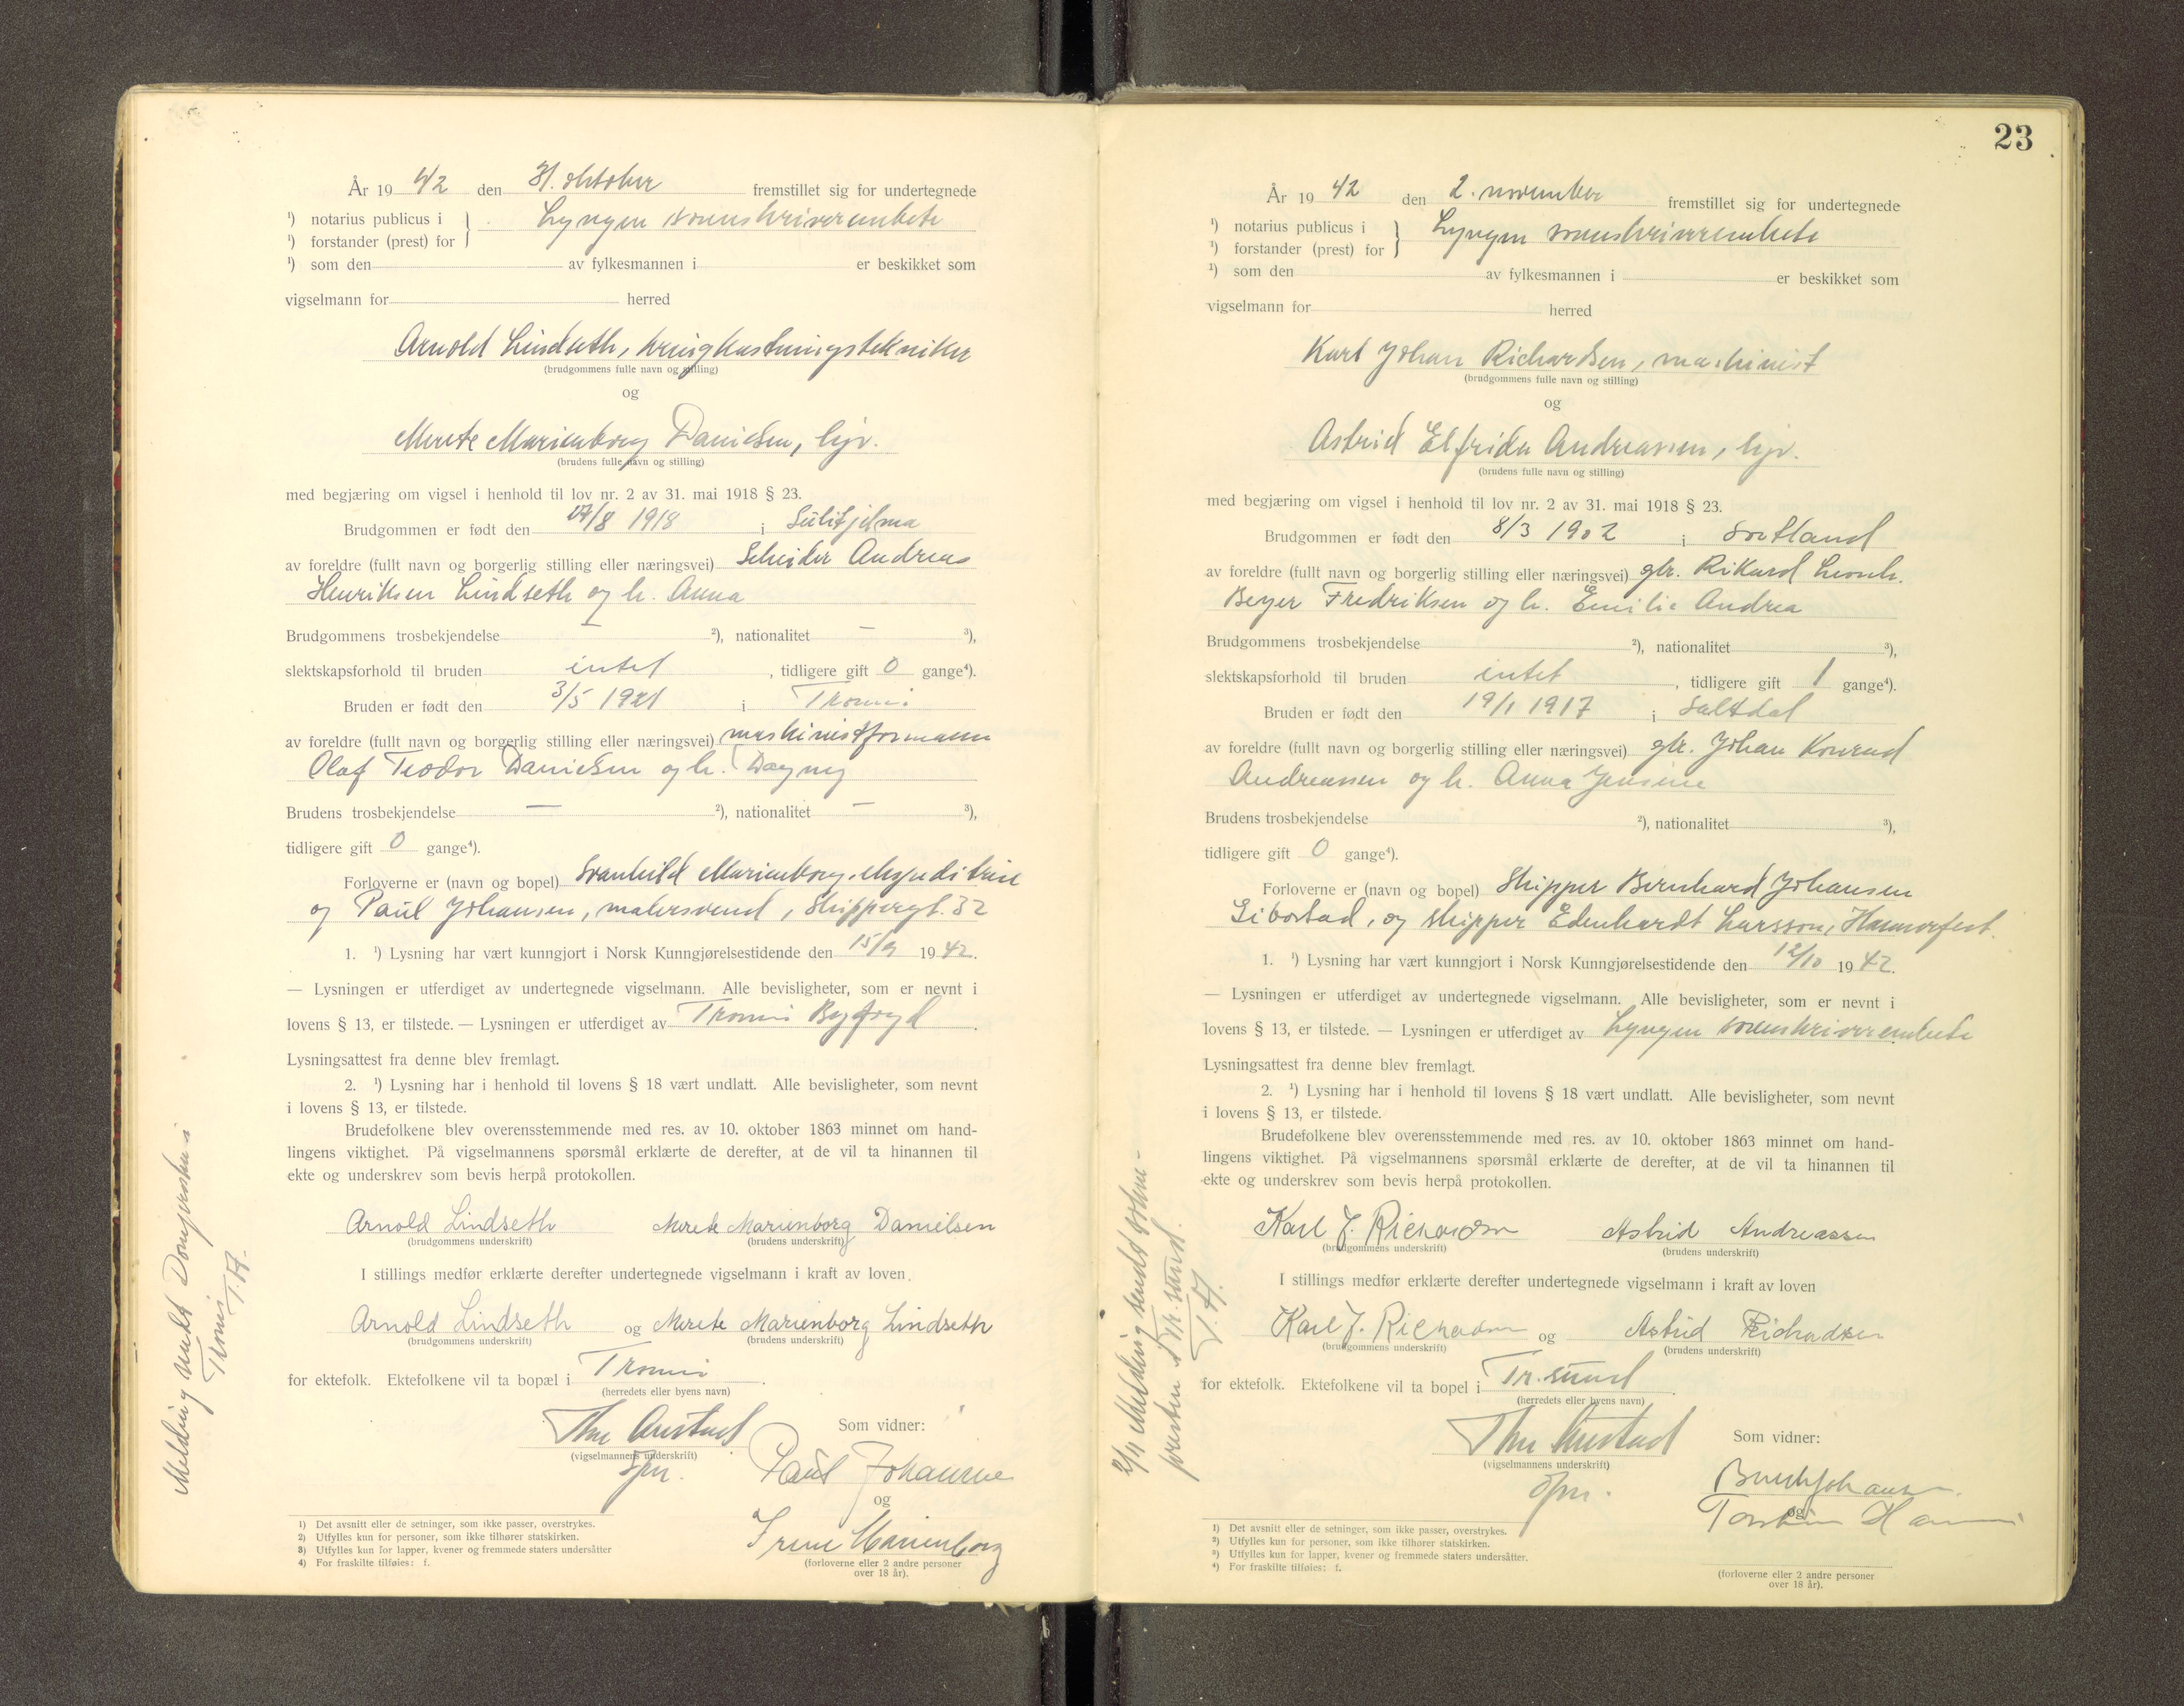 År 19 42 den 31. oktober fremstillet sig for undertegnede
¹) notarius publicus i } Lyngen sorenskriverembete
¹) forstander (prest) for
¹) som den av fylkesmannen i er beskikket som
vigselmann for herred
Arnold Lindseth, kringkastningstekniker
(brudgommens fulle navn og stilling)
og
Merete Marienborg Danielsen, hjv.
(brudens fulle navn og stilling)
med begjæring om vigsel i henhold til lov nr. 2 av 31. mai 1918 § 23.
Brudgommen er født den 17/8 1918 i Sulitjelma
av foreldre (fullt navn og borgerlig stilling eller næringsvei) Scheider Andreas
Henriksen Lindseth og h. Anna
Brudgommens trosbekjendelse — ²), nationalitet — ³),
slektskapsforhold til bruden intet , tidligere gift 0 gange⁴).
Bruden er født den 3/5 1921 i Tromsø
av foreldre (fullt navn og borgerlig stilling eller næringsvei) maskinistformann
Olaf Teodor Danielsen og h. Dagny
Brudens trosbekjendelse — ²), nationalitet — ³),
tidligere gift 0 gange⁴).
Forloverne er (navn og bopel) Svanhild Marienborg, ekspeditrise
og Paul Johansen, malersvend, Skippergt. 32
1. ¹) Lysning har vært kunngjort i Norsk Kunngjørelsestidende den 15/9 19 42.
— Lysningen er utferdiget av undertegnede vigselmann. Alle bevisligheter, som er nevnt i
lovens § 13, er tilstede. — Lysningen er utferdiget av Tromsø Byfogd .
Lysningsattest fra denne blev fremlagt.
2. ¹) Lysning har i henhold til lovens § 18 vært undlatt. Alle bevisligheter, som nevnt
i lovens § 13, er tilstede.
Brudefolkene blev overensstemmende med res. av 10. oktober 1863 minnet om hand-
lingens viktighet. På vigselmannens spørsmål erklærte de derefter, at de vil ta hinannen til
ekte og underskrev som bevis herpå protokollen.
Arnold Lindseth Merete Marienborg Danielsen
(brudgommens underskrift) (brudens underskrift)
I stillings medfør erklærte derefter undertegnede vigselmann i kraft av loven
Arnold Lindseth og Merete Marienborg Lindseth
(brudgommens underskrift) (brudens underskrift)
for ektefolk. Ektefolkene vil ta bopæl i Tromsø .
(herredets eller byens navn)
Som vidner:
(vigselmannens underskrift)
Paul Johansen
og
Irene Marienborg
(forloverne eller 2 andre personer
over 18 år).
1) Det avsnitt eller de setninger, som ikke passer, overstrykes.
2) Utfylles kun for personer, som ikke tilhører statskirken.
3) Utfylles kun for lapper, kvener og fremmede staters undersåtter
4) For fraskilte tilføies: f.
Melding sendt Domprosten i
Tromsø
T.A.
23
År 19 42 den 2. november fremstillet sig for undertegnede
¹) notarius publicus i } Lyngen sorenskriverembete
¹) forstander (prest) for
¹) som den av fylkesmannen i er beskikket som
vigselmann for herred
Karl Johan Richardsen, maskinist
(brudgommens fulle navn og stilling)
og
Astrid Elfrida Andreassen, hjv.
(brudens fulle navn og stilling)
med begjæring om vigsel i henhold til lov nr. 2 av 31. mai 1918 § 23.
Brudgommen er født den 8/3 1902 i Sortland
av foreldre (fullt navn og borgerlig stilling eller næringsvei) gbr. Rikard Leonh.
Beyer Fredriksen og h. Emilie Andrea
Brudgommens trosbekjendelse ²), nationalitet ³),
slektskapsforhold til bruden intet , tidligere gift 1 gange⁴).
Bruden er født den 19/1 1917 i Saltdal
av foreldre (fullt navn og borgerlig stilling eller næringsvei) gbr. Johan Konrad
Andreassen og h. Anna Jensine
Brudens trosbekjendelse ²), nationalitet ³),
tidligere gift 0 gange⁴).
Forloverne er (navn og bopel) Skipper Bernhard Johansen
Gibostad, og skipper Edenhardt Larsson, Hammerfest.
1. ¹) Lysning har vært kunngjort i Norsk Kunngjørelsestidende den 12/10 19 42.
— Lysningen er utferdiget av undertegnede vigselmann. Alle bevisligheter, som er nevnt i
lovens § 13, er tilstede. — Lysningen er utferdiget av Lyngen sorenskriverembete
Lysningsattest fra denne blev fremlagt.
2. ¹) Lysning har i henhold til lovens § 18 vært undlatt. Alle bevisligheter, som nevnt
i lovens § 13, er tilstede.
Brudefolkene blev overensstemmende med res. av 10. oktober 1863 minnet om hand-
lingens viktighet. På vigselmannens spørsmål erklærte de derefter, at de vil ta hinannen til
ekte og underskrev som bevis herpå protokollen.
Karl J. Richardsen Astrid Andreassen
(brudgommens underskrift) (brudens underskrift)
I stillings medfør erklærte derefter undertegnede vigselmann i kraft av loven
Karl J. Richardsen og Astrid Richardsen
(brudgommens underskrift) (brudens underskrift)
for ektefolk. Ektefolkene vil ta bopel i Tr.sund .
(herredets eller byens navn)
Som vidner:
(vigselmannens underskrift)
og
(forloverne eller 2 andre personer
over 18 år).
1) Det avsnitt eller de setninger, som ikke passer, overstrykes.
2) Utfylles kun for personer, som ikke tilhører statskirken.
3) Utfylles kun for lapper, kvener og fremmede staters undersåtter.
4) For fraskilte tilføies: f.
2/11 Melding sendt sokne-
presten i Tr.sund.
T.A.